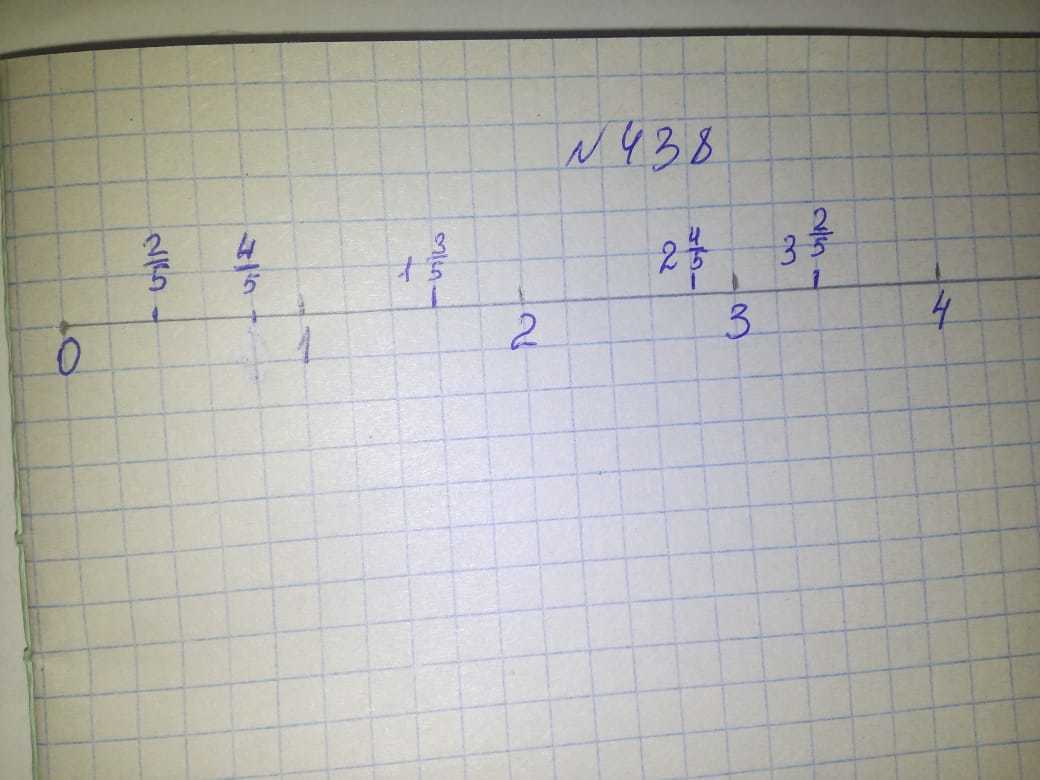 № 438
2/5 4/5 1 3/5 2 4/5 3 2/5
0 1 2 3 4